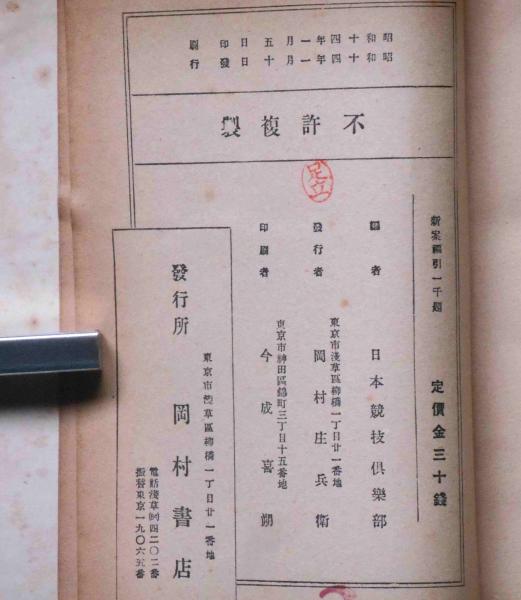 昭和十四年一月五日印刷
昭和十四年一月十日發行
不許複製
足立
新案福引一千題
定價金三十錢
編者 日本競技俱樂部
東京市淺草區柳橋一丁目廿一番地
發行者 岡村庄兵衛
東京市神田區錦町三丁目十五番地
印刷者 今成喜朔
東京市淺草區柳橋一丁目廿一番地
發行所 岡村書店
電話淺草四二〇二番
振替東京一九〇六五番